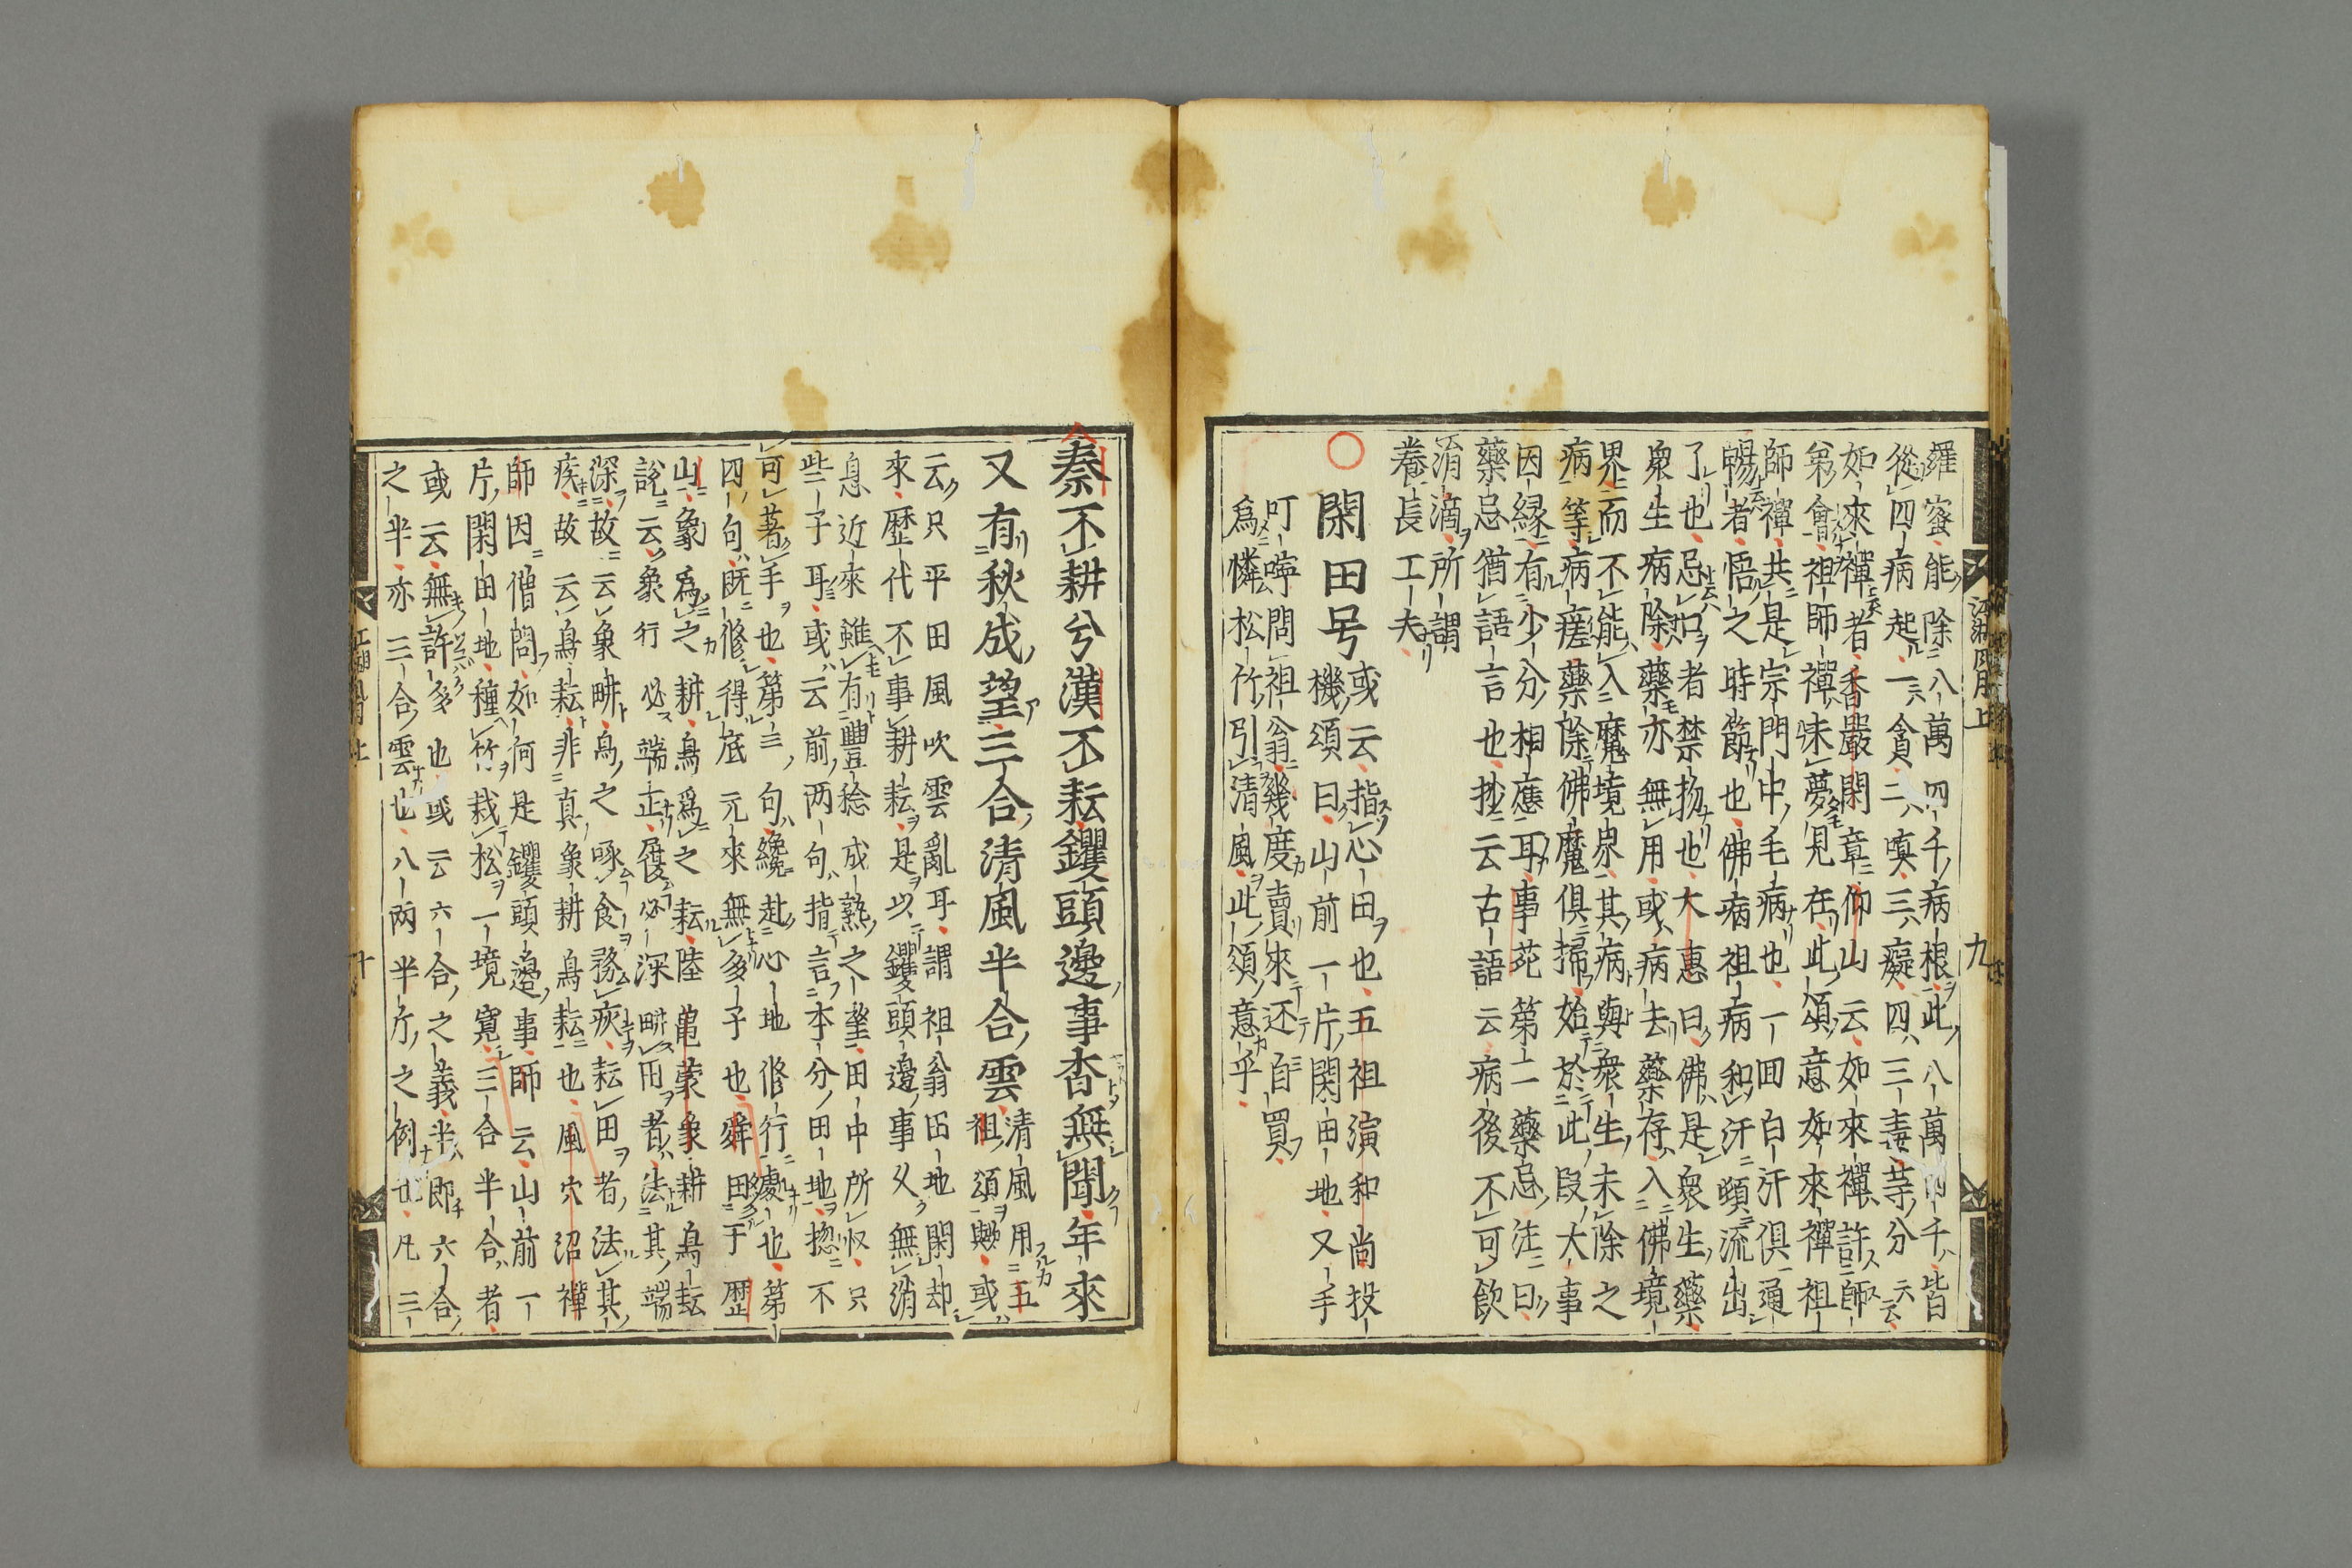 羅蜜能除八萬四千病根此八萬四千皆
從四病起一貪二嗔三癡四三毒等分云云
如來禪者香嚴閑章仰山云如來禪許師
弟會祖師禪未夢見在此頌意如來禪祖
師禪共是宗門中毛病也一回白汗俱通
暢者悟之時節也佛病祖病和汗頭流出
了也忌口者禁物也大惠曰佛是衆生藥
衆生病除藥亦無用或病去藥存入佛境
界而不能入魔境衆其病與衆生未除之
病等病瘥藥除佛魔俱掃始於此段大事
因緣有少分相應耳事苑第二藥忌注曰
藥忌猶語言也抄云古語云病後不可飲
涓滴所謂
養長工夫
閑田号
或云指心田也五祖演和尚投
機頌曰山前一片閑田地又手
叮嚀問祖翁幾度賣來还自買
爲憐松竹引清風此頌意乎
江湖風月上
九
秦不耕兮漢不耘钁頭邊事杳無聞年來
又有秋成望三合清風半合雲
清風用五
祖頌歟或
云只平田風吹雲亂耳謂祖翁田地閑却
來歷代不事耕耘是以钁頭邊事又無消
息近來雖有豐稔成熟之望田中所收只
些子耳或云前兩句指言本分田地惣不
可著手也第三句纔赴心地修行處也第
四句既修得底元來無多子也舜田于歷
山象爲之耕鳥爲之耘陸龜蒙象耕鳥耘
說云象行必端正履必深畊用者法其端
深故云象畊鳥之啄食務疾耘田者法其
疾故云鳥耘非真象耕鳥耘也風穴沼禪
師因僧問如何是钁頭邊事師云山前一
片閑田地種竹栽松一境寬三合半合者
或云無許多也或云六合之義半即六合
之半亦三合雲也八兩半斤之例也凡三
十